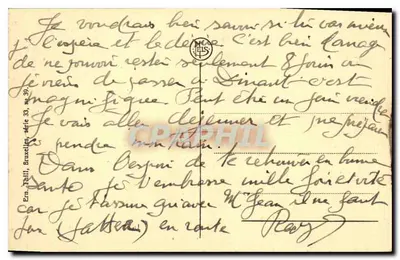 Je voudrais bien savoir si tu vas mieux
je l'espère et le désire. C'est bien dommage
de ne pouvoir rester seulement 8 jours ici
je viens de passer à Dinant c'est
magnifique. Peut être un jour viendrai
Je vais aller déjeuner et me préparer
à prendre mon train.
Dans l'espoir de te retrouver en bonne
santé je t'embrasse mille fois et vite
car je t'assure qu'avec Mme Jean il ne faut
pas en route Ray
Ern. Thill, Bruxelles, série 33, no 39
CPAPHIL